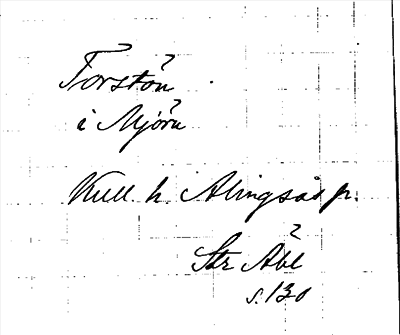 Torstön
i Mjörn
Kull h. Alingsås p.
Str Åbl
s. 130